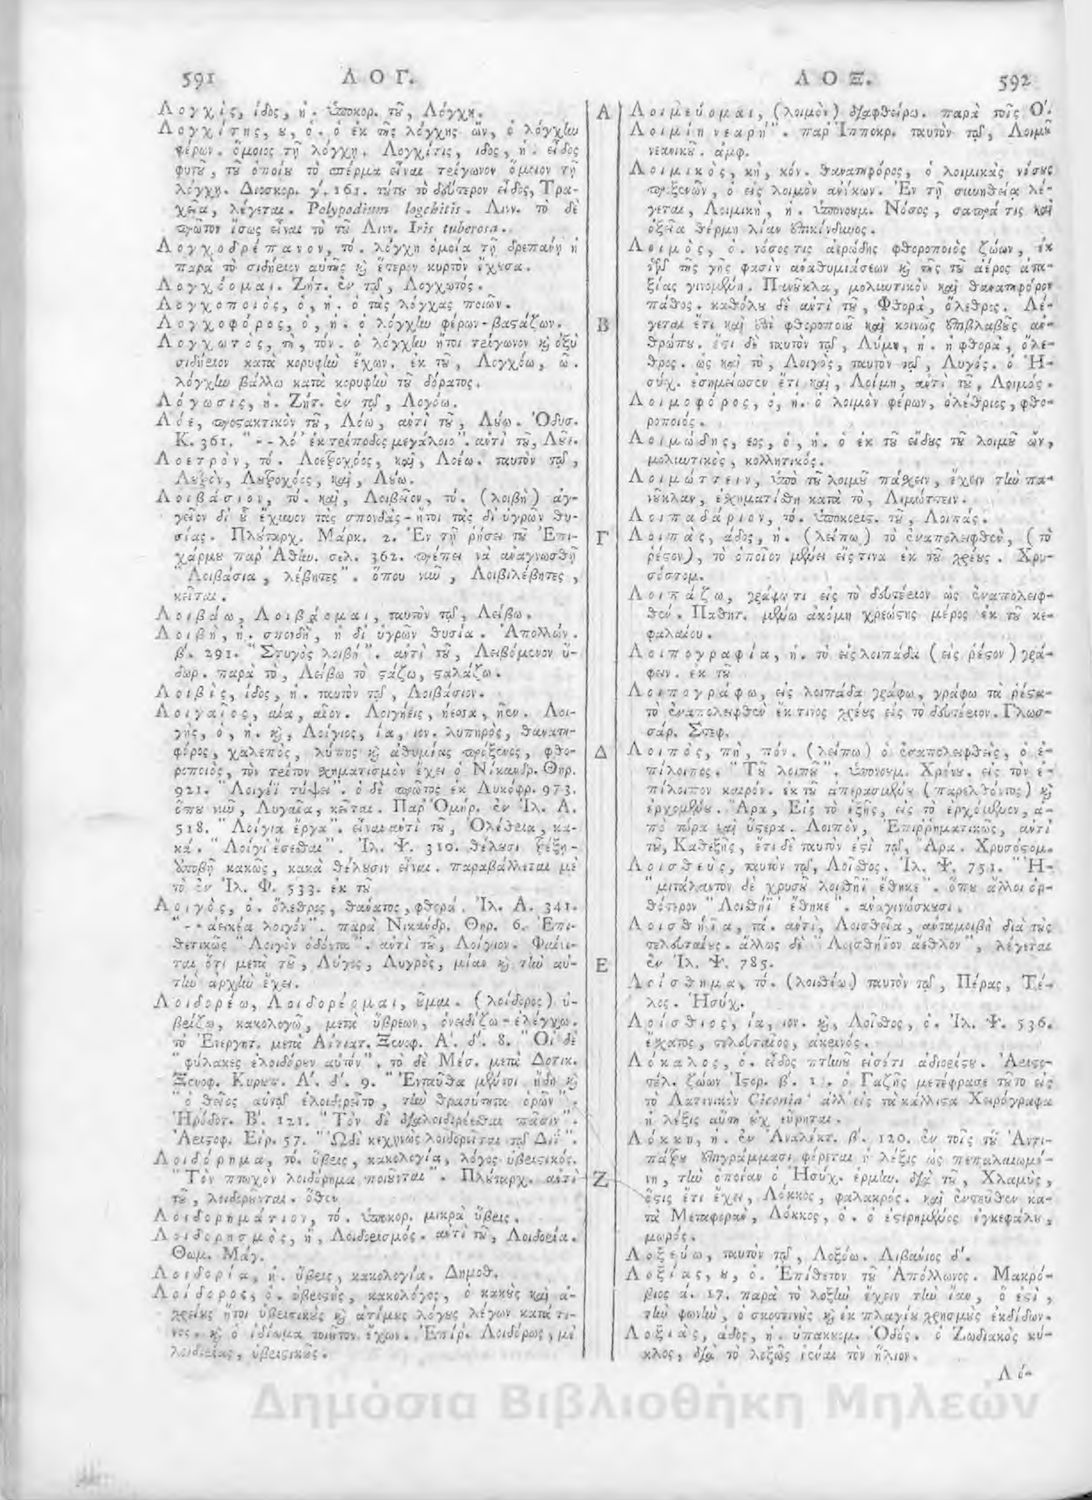 591 ΛΟΓ.
Λογχὶς, ίδος, ἡ. ὑποκορ. τοῦ, Λόγχη.
Λογχίτης, ου, ὁ. ὁ ἐκ τῆς λόγχης ὤν, ὁ λόγχην
φέρων. ὅμοιος τῇ λόγχῃ. Λογχῖτις, ιδος, ἡ. εἶδος
φυτοῦ, τοῦ ὁποίου τὸ σπέρμα εἶναι τρίγωνον ὅμοιον τῇ
λόγχῃ. Διοσκορ. γ΄. 161. τούτου τὸ δεύτερον εἶδος, Τρα-
χεῖα, λέγεται. Polypodium logchitis. Λινν. τὸ δὲ
πρῶτον ἴσως εἶναι τὸ τοῦ Λινν. Iris tuberosa.
Λογχοδρέπανον, τό. λόγχη ὁμοία τῇ δρεπάνῃ ἢ
παρὰ τὸ σιδήριον αὐτῆς καὶ ἕτερον κυρτὸν ἔχουσα.
Λογχόομαι. Ζήτ. ἐν τῷ, Λογχωτός.
Λογχοποιὸς, ὁ, ἡ. ὁ τὰς λόγχας ποιῶν.
Λογχοφόρος, ὁ, ἡ. ὁ λόγχην φέρων-βαστάζων.
Λογχωτὸς, τὴ, τόν. ὁ λόγχην ἤτοι τρίγωνον καὶ ὀξὺ
σιδήριον κατὰ κορυφὴν ἔχων. ἐκ τοῦ, Λογχόω, ῶ.
λόγχην βάλλω κατὰ κορυφὴν τοῦ δόρατος.
Λόγωσις, ἡ. Ζήτ. ἐν τῷ, Λογόω.
Λόε, προστακτικὸν τοῦ, Λόω, ἀντὶ τοῦ, Λούω. Ὀδυσ.
Κ. 361. "--λό᾽ ἐκ τρίποδος μεγάλοιο". ἀντὶ τοῦ, Λοῦε.
Λοετρὸν, τό. Λοετροχόος, καὶ, Λοέω. ταυτὸν τῷ,
Λουτρὸν, Λουτροχόος, καὶ, Λούω.
Λοιβάσιον, τό. καὶ, Λοιβεῖον, τό. (λοιβὴ) ἀγ-
γεῖον δι᾽ οὗ ἔχυνον τὰς σπονδὰς-ἤτοι τὰς δι᾽ ὑγρῶν θυ-
σίας. Πλούταρχ. Μάρκ. 2. Ἐν τῇ ῥήσει τοῦ Ἐπι-
χάρμου παρ᾽ Ἀθην. σελ. 362. πρέπει νὰ ἀναγνωσθῇ
"Λοιβάσια, λέβητες". ὅπου νῦν, Λοιβιλέβητες,
κεῖται.
Λοιβάω, Λοιβάομαι, ταυτὸν τῷ, Λείβω.
Λοιβὴ, ἡ. σπονδὴ, ἡ δι᾽ ὑγρῶν θυσία. Ἀπολλών.
β΄. 291. "Στυγὸς λοιβή". ἀντὶ τοῦ, Λειβόμενον ὕ-
δωρ. παρὰ τὸ, Λείβω τὸ στάζω, σταλάζω.
Λοιβὶς, ίδος, ἡ. ταυτὸν τῷ, Λοιβάσιον.
Λοιγαῖος, αία, αῖον. Λοιγήεις, ήεσσα, ῆεν. Λοι-
γὴς, ὁ, ἡ. καὶ, Λοίγιος, ία, ιον. λυπηρὸς, θανατη-
φόρος, χαλεπὸς, λύπης καὶ ἀθυμίας πρόξενος, φθο-
ροποιὸς, τὸν τρίτον σχηματισμὸν ἔχει ὁ Νίκανδρ. Θηρ.
921. "Λοιγέϊ τύψει". ὁ δὲ πρῶτος ἐκ Λυκόφρ. 973.
ὅπου νῦν, Λυγαῖα, κεῖται. Παρ᾽ Ὁμήρ. ἐν Ἰλ. Α.
518. "Λοίγια ἔργα". εἶναι ἀντὶ τοῦ, Ὀλέθρια, κα-
κά. "Λοίγι᾽ ἔσεσθαι". Ἰλ. Ψ. 310. θέλουσι ξεζη-
ἀποβῇ κακῶς, κακὰ θέλουσιν εἶναι. παραβάλλεται μὲ
τὸ ἐν Ἰλ. Φ. 533. ἐκ τοῦ
Λοιγὸς, ὁ. ὄλεθρος, θάνατος, φθορά. Ἰλ. Α. 341.
"--ἀεικέα λοιγόν". παρὰ Νικάνδρ. Θηρ. 6. Ἐπι-
θετικῶς "Λοιγὸν ὀδόντα". ἀντὶ τοῦ, Λοίγιον. Φαίνε-
ται ὅτι μετὰ τοῦ, Λύγος, Λυγρὸς, μίαν καὶ τὴν αὐ-
τὴν ἀρχὴν ἔχει.
Λοιδορέω, Λοιδορέομαι, οῦμαι. (λοίδορος) ὑ-
βρίζω, κακολογῶ, μετὰ ὕβρεων, ὀνειδίζω-ἐλέγχω.
τὸ Ἐνεργητ. μετὰ Αἰτιατ. Ξενοφ. Α΄. δ΄. 8. "Οἱ δὲ
"φύλακες ἐλοιδόρουν αὐτόν". τὸ δὲ Μέσ. μετὰ Δοτικ.
Ξενοφ. Κυρωπ. Α΄. δ΄. 9. "Ἐνταῦθα μέντοι ἤδη καὶ
"ὁ θεῖος αὐτῷ ἐλοιδορεῖτο, τὴν θρασύτητα ὁρῶν".
Ἡρόδοτ. Β΄. 121. "Τὸν δὲ διαλοιδορέεσθαι πᾶσιν".
Ἀριστοφ. Εἰρ. 57. "Ὡδὶ κεχηνὼς λοιδορεῖται τῷ Διΐ".
Λοιδόρημα, τό. ὕβρις, κακολογία, λόγος ὑβριστικός.
"Τὸν πτωχὸν λοιδόρημα ποιοῦνται". Πλούταρχ. ἀντὶ
τοῦ, λοιδοροῦνται. ὅθεν
Λοιδορημάτιον, τό. ὑποκορ. μικρὰ ὕβρις.
Λοιδορησμὸς, ἡ, Λοιδορισμός. ἀντὶ τοῦ, Λοιδορία.
Θωμ. Μάγ.
Λοιδορία, ἡ. ὕβρις, κακολογία. Δημοσθ.
Λοίδορος, ὁ. ὑβριστὴς, κακολόγος, ὁ κακοὺς καὶ ἀ-
χρείους ἤτοι ὑβριστικοὺς καὶ ἀτίμους λόγους λέγων κατά τι-
νος. καὶ ὁ ἰδίωμα τοιοῦτον ἔχων. Ἐπίρ. Λοιδόρως, μὲ
λοιδορίας, ὑβριστικῶς.
Α
Β
Γ
Δ
Ε
Ζ
ΛΟΞ. 592
Λοιμεύομαι, (λοιμὸν) διαφθείρω. παρὰ τοῖς Ο΄.
Λοιμίη νεαρή". παρ᾽ Ἱπποκρ. ταυτὸν τῷ, Λοιμοῦ
νεανικοῦ. ἀμφ.
Λοιμικὸς, κὴ, κόν. θανατηφόρος, ὁ λοιμικὰς νόσους
προξενῶν, ὁ εἰς λοιμὸν ἀνήκων. Ἐν τῇ συνηθείᾳ λέ-
γεται, Λοιμικὴ, ἡ. ὑπονοουμ. Νόσος, σαπρά τις καὶ
ὀξεῖα θέρμη λίαν ἐπικίνδυνος.
Λοιμὸς, ὁ. νόσος τις ἀερώδης φθοροποιὸς ζώων, ἐκ
τῶν τῆς γῆς φασὶν ἀναθυμιάσεων καὶ τῆς τοῦ ἀέρος ἀτα-
ξίας γινομένη. Πανούκλα, μολυντικὸν καὶ θανατηφόρον
πάθος. καθόλου δὲ ἀντὶ τοῦ, Φθορὰ, ὄλεθρος. Λέ-
γεται ἔτι καὶ ἐπὶ φθοροποιοῦ καὶ κοινῶς ἐπιβλαβοῦς ἀν-
θρώπου. ἔτι δὲ ταυτὸν τῷ, Λύμη, ἡ. ἡ φθορὰ, ὄλε-
θρος. ὡς καὶ τὸ, Λοιγὸς, ταυτὸν τῷ, Λυγός. ὁ Ἡ-
σύχ. ἐσημείωσεν ἔτι καὶ, Λοίμη, ἀντὶ τοῦ, Λοιμός.
Λοιμοφόρος, ὁ, ἡ. ὁ λοιμὸν φέρων, ὀλέθριος, φθο-
ροποιός.
Λοιμώδης, εος, ὁ, ἡ. ὁ ἐκ τοῦ εἴδους τοῦ λοιμοῦ ὢν,
μολυντικὸς, κολλητικός.
Λοιμώττειν, ὑπὸ τοῦ λοιμοῦ πάσχειν, ἔχειν τὴν πα-
νούκλαν, ἐσχηματίσθη κατὰ τὸ, Λιμώττειν.
Λοιπαδάριον, τό. ὑποκορις. τοῦ, Λοιπάς.
Λοιπὰς, άδος, ἡ. (λείπω) τὸ ἐναπολειφθὲν, (τὸ
ῥέστον), τὸ ὁποῖον μένει εἴς τινα ἐκ τοῦ χρέους. Χρυ-
σόστομ.
Λοιπάζω, γράφω τι εἰς τὸ δεύτερον ὡς ἐναπολειφ-
θέν. Παθητ. μένω ἀκόμη χρεώστης μέρος ἐκ τοῦ κε-
φαλαίου.
Λοιπογραφία, ἡ. τὸ εἰς λοιπάδα (εἰς ῥέστον) γρά-
φειν. ἐκ τοῦ
Λοιπογράφω, εἰς λοιπάδα γράφω, γράφω τὰ ῥέστα-
τὸ ἐναπολειφθὲν ἔκ τινος χρέους εἰς τὸ δεύτερον. Γλωσ-
σάρ. Στεφ.
Λοιπὸς, πὴ, πόν. (λείπω) ὁ ἐναπολειφθεὶς, ὁ ἐ-
πίλοιπος. "Τοῦ λοιποῦ". ὑπονοουμ. Χρόνου. εἰς τὸν ἐ-
πίλοιπον καιρόν. ἐκ τοῦ ἀπερασμένου (παρελθόντος) καὶ
ἐρχομένου. Ἄρα, Εἰς τὸ ἑξῆς, εἰς τὸ ἐρχόμενον, ἀ-
πὸ τώρα καὶ ὕστερα. Λοιπὸν, Ἐπιρρηματικῶς, ἀντὶ
τοῦ, Καθεξῆς, ἔτι δὲ ταυτὸν ἐστὶ τῷ, Ἄρα. Χρυσόστομ.
Λοισθεὺς, ταυτὸν τῷ, Λοῖσθος. Ἰλ. Ψ. 751. "Ἡ-
"μιτάλαντον δὲ χρυσοῦ λοισθῆϊ ἔθηκε". ὅπου ἄλλοι ὀρ-
θότερον "Λοισθήϊ᾽ ἔθηκε". ἀναγινώσκουσι.
Λοισθήϊα, τά. ἀντὶ, Λοισθεῖα, ἀνταμοιβὴ διὰ τοὺς
τελευταίους. ἄλλως δὲ "Λοισθήϊον ἄεθλον", λέγεται
ἐν Ἰλ. Ψ. 785.
Λοίσθημα, τό. (λοισθέω) ταυτὸν τῷ, Πέρας, Τέ-
λος. Ἡσύχ.
Λοίσθιος, ία, ιον. καὶ, Λοῖσθος, ὁ. Ἰλ. Ψ. 536.
ἔσχατος, τελευταῖος, ἀκρινός.
Λόκαλος, ὁ. εἶδος πτηνοῦ εἰσέτι ἀδιορίστου. Ἀριστο-
τέλ. ζώων Ἱστορ. β΄. 1. ὁ Γαζῆς μετέφρασε τοῦτο εἰς
τὸ Λατινικὸν Ciconia᾽ ἀλλ᾽ εἰς τὰ κάλλιστα Χειρόγραφα
ἡ λέξις αὕτη οὐχ εὕρηται.
Λόκκη, ἡ. ἐν Ἀναλέκτ. β΄. 120. ἐν τοῖς τοῦ Ἀντι-
πάτρου ἐπιγράμμασι φέρεται ἡ λέξις ὡς πεπαλαιωμέ-
νη, τὴν ὁποίαν ὁ Ἡσύχ. ἑρμην. διὰ τοῦ, Χλαμὺς,
ὅστις ἔτι ἔχει, Λόκκος, φαλακρός. καὶ ἐντεῦθεν κα-
τὰ Μεταφορὰν, Λόκκος, ὁ. ὁ ἐστερημένος ἐγκεφάλου,
μωρός.
Λοξεύω, ταυτὸν τῷ, Λοξόω. Λιβάνιος δ΄.
Λοξίας, ου, ὁ. Ἐπίθετον τοῦ Ἀπόλλωνος. Μακρό-
βιος α. 17. παρὰ τὸ λοξὴν ἔχειν τὴν ἴαν, ὅ ἐστι,
τὴν φωνὴν, ὁ σκοτεινοὺς καὶ ἐκ πλαγίου χρησμοὺς ἐκδίδων.
Λοξιὰς, άδος, ἡ. ὑπακουμ. Ὁδός. ὁ Ζωδιακὸς κύ-
κλος, διὰ τὸ λοξῶς ἰέναι τὸν ἥλιον.
Λό-
Δημόσια Βιβλιοθήκη Μηλεών